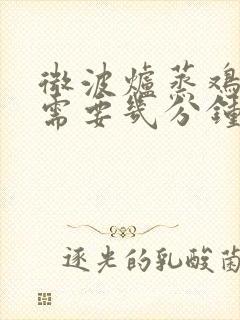 微波爐蒸鸡
需要幾分鐘
逐光的乳酸菌